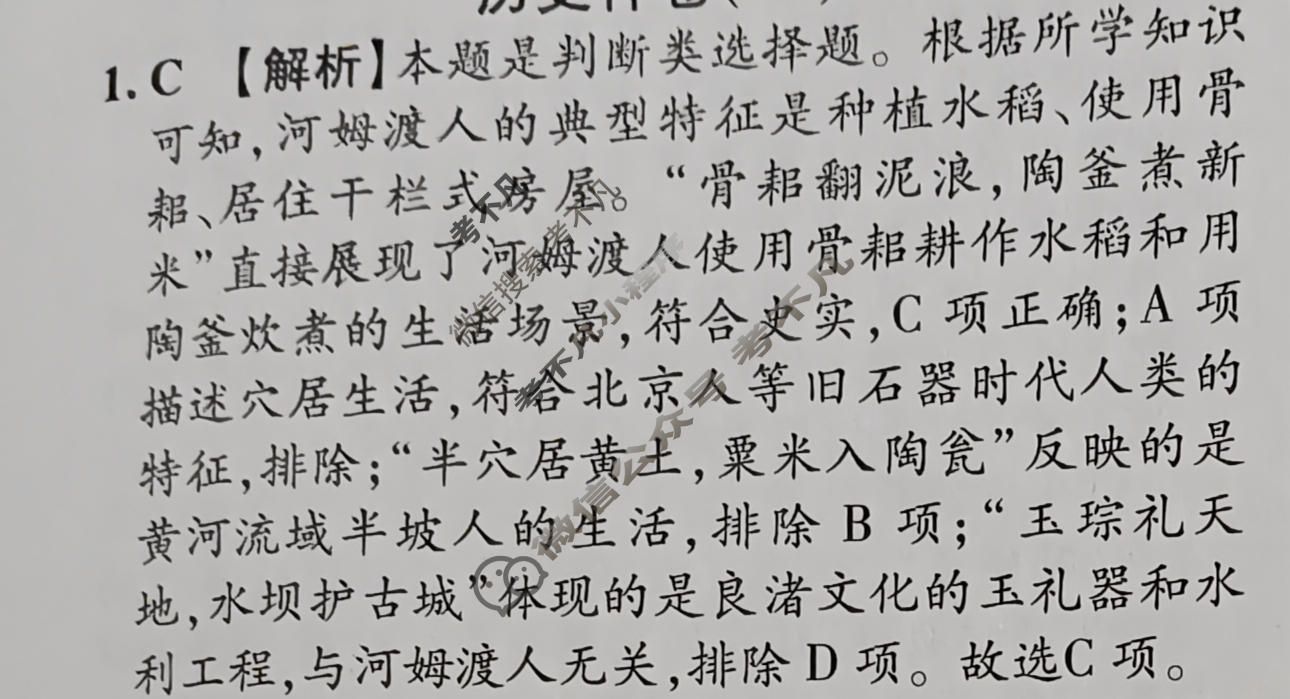 1. C 【解析】本题是判断类选择题。根据所学知识
可知,河姆渡人的典型特征是种植水稻、使用骨
耜、居住干栏式房屋。“骨耜翻泥浪,陶釜煮新
米”直接展现了河姆渡人使用骨耜耕作水稻和用
陶釜炊煮的生活场景,符合史实,C 项正确;A 项
描述穴居生活,符合北京人等旧石器时代人类的
特征,排除;“半穴居黄土,粟米入陶瓮”反映的是
黄河流域半坡人的生活,排除 B 项;“玉琮礼天
地,水坝护古城”体现的是良渚文化的玉礼器和水
利工程,与河姆渡人无关,排除 D 项。故选C 项。
考不凡
微信搜索考不凡
考不凡小程序
微信公众号 考不凡